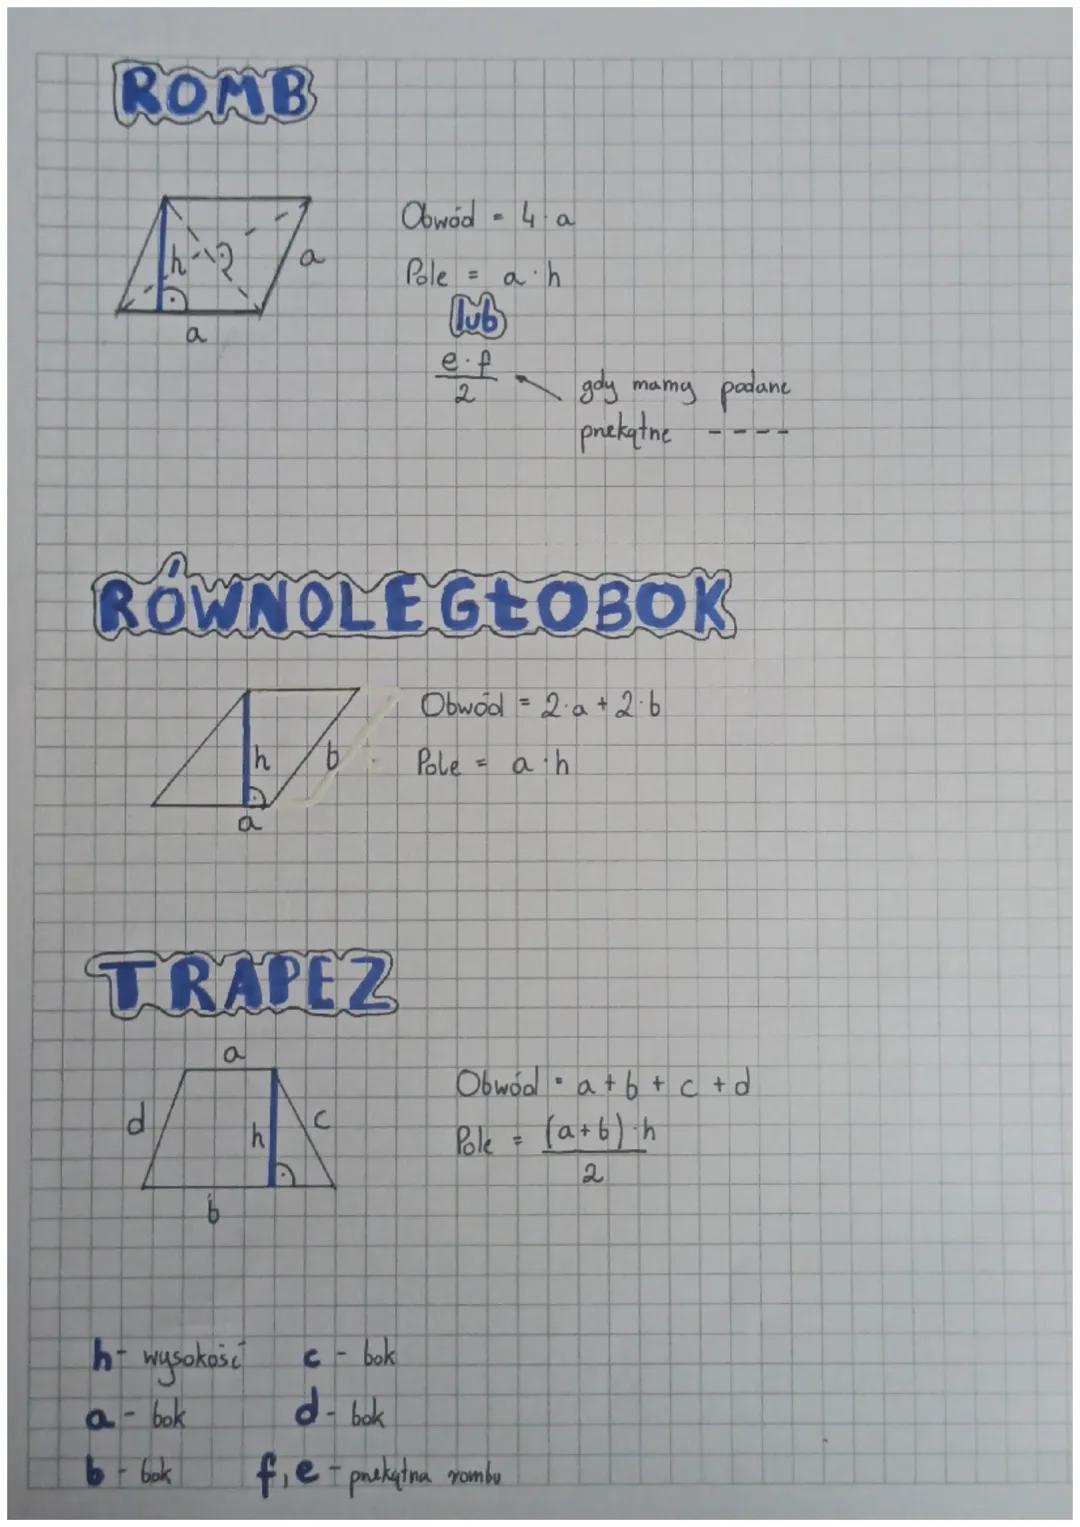 ROMB
Obwód = 4·a
h
a
Pole = a·h
a
lub
e·f
2
gdy mamy podane
przekątne ----
RÓWNOLEGŁOBOK
Obwód = 2·a + 2·b
h
b
Pole = a·h
a
TRAPEZ
a
Obwód = a + b + c + d
d
h
c
Pole = (a+b)·h
2
b
h - wysokość
c - bok
a - bok
d - bok
b - bok
f, e - przekątna rombu